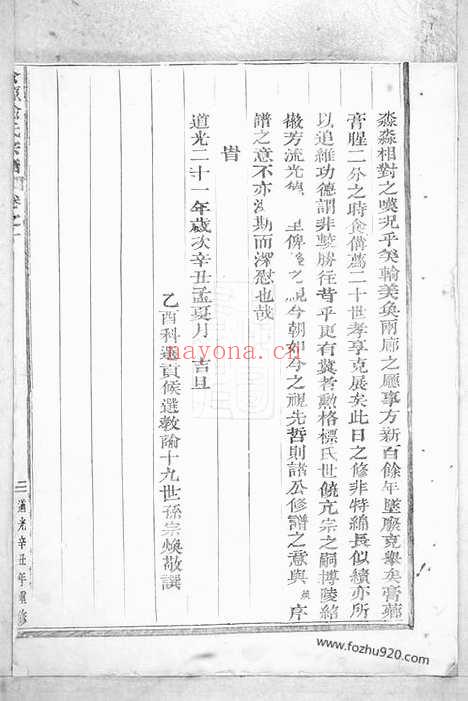 淼淼相對之嘆況乎美輪美奐兩廊之廳事方新百餘年墜廢克舉矣膏薌
膏腥二分之時食備薦二十世孝享克展矣此日之修非特綿長似續亦所
以追維功德謂非數勝往昔乎更有冀者勲格標氏世饒亢宗之嗣摶陵緒
徽芳流光俾之視今朝如今之視先哲則諸公修譜之意與序
譜之意不亦勤而深慰也哉
旹
道光二十一年歲次辛丑孟夏月吉旦
乙酉科選貢候選教諭十九世孫宗煥敬譔
氏宗譜卷之
道光辛丑年重修
nayona.cn
www.fozhu920.com